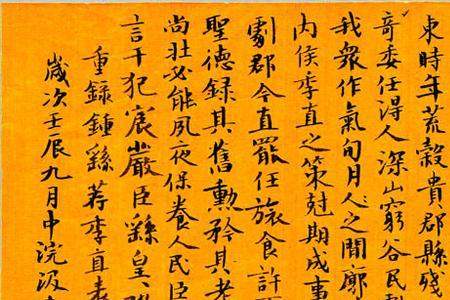 東時年荒穀貴郡縣殘
奇委任得人深山窮谷民
我衆作氣旬月人之間廓
内侯季直之策尅期成事
劇郡今直罷任旅食許
聖德録其舊勳矜其老
尚壯必能夙夜保養人民臣
言干犯宸嚴臣繇皇
重録鍾繇荐季直表
歲次壬辰九月中浣汲